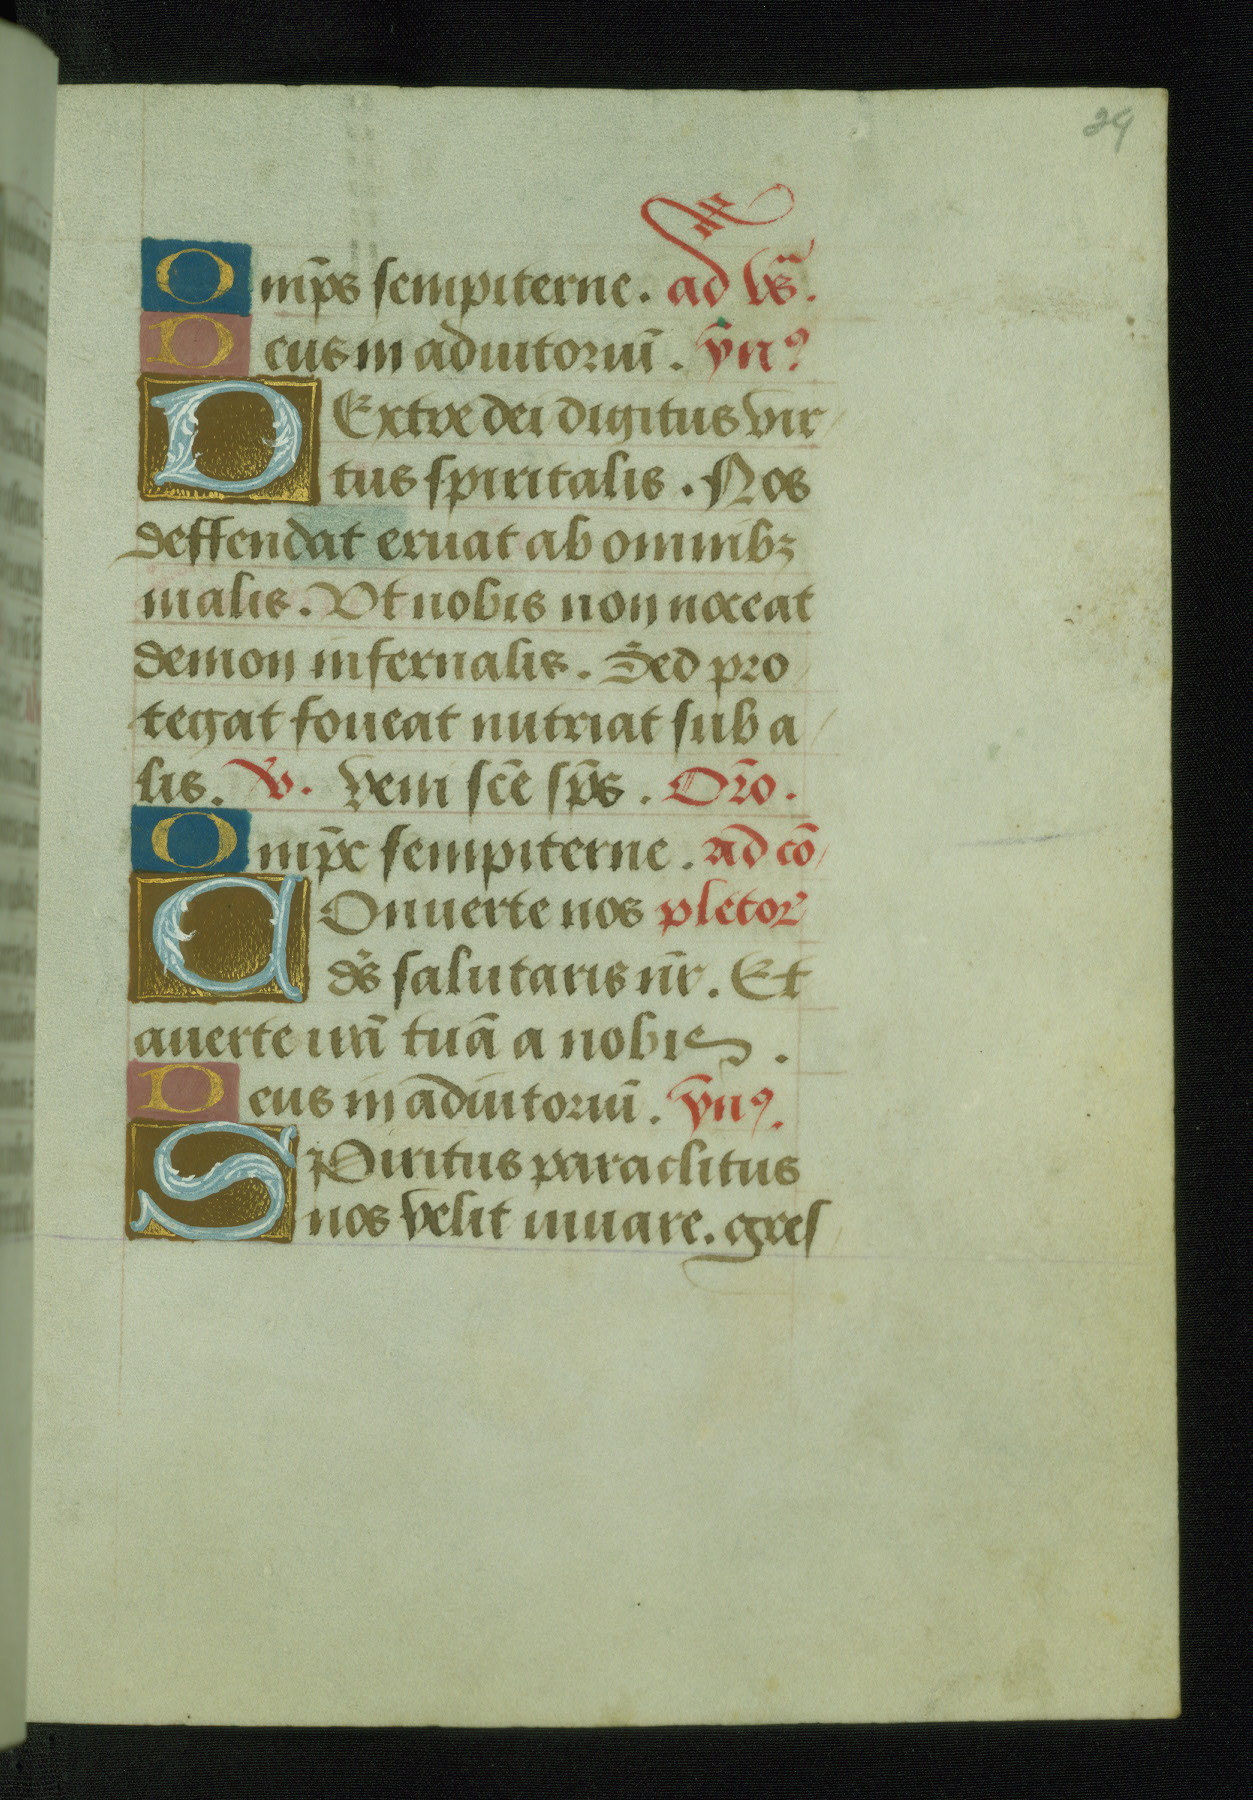 29
Omp̄s sempiterne. ad vs̄.
Deus in adiutoriū. ȳnꝰ
DExtre dei digitus vir
tus spiritalis. Nos
deffendat eruat ab omnibꝫ
malis. Vt nobis non noceat
demon infernalis. Sed pro
tegat foueat nutriat sub a
lis. ℣. Veni sc̄e sp̄s. Or̄o.
Omp̄e sempiterne. Ad cō
COnuerte nos pletor̄
dē̄s salutaris nr̄. Et
auerte irā tuā a nobis.
Deus in adiutoriū. ȳnꝰ.
SPiritus paraclitus
nos velit iuuare. gres